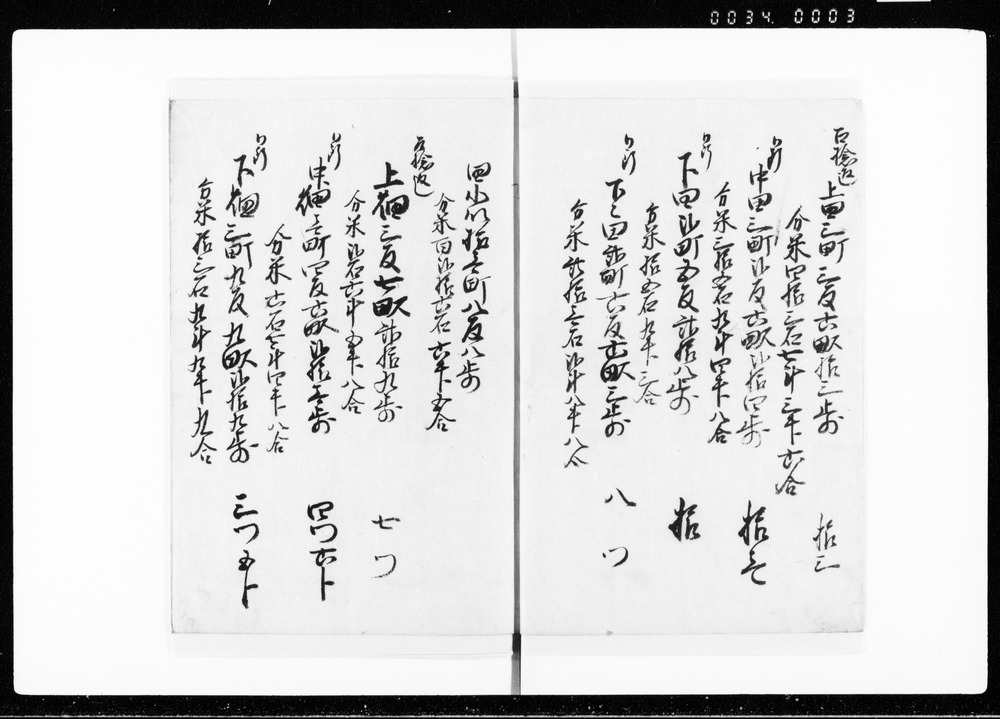 上田三町三反六畝拾三歩 拾三
分米四拾三石七斗三升六合
中田三町弐反六畝弐拾四歩 拾壱
分米三拾五石九斗四升八合
下田弐町五反弐拾八歩 拾
分米拾五石九升三合
下々田弐町六反六畝三歩 八ツ
分米弐拾壱石弐斗八升八合
田小以拾壱町八反八歩
分米百弐拾六石六升五合
上畑三反七畝弐拾九歩 七ツ
分米弐石六斗五升八合
中畑壱町四反六畝弐拾壱歩 四ツ六分
分米六石七斗四升八合
下畑三町九反九畝弐拾九歩 三ツ五分
分米拾三石九斗九升九合
0034.0003